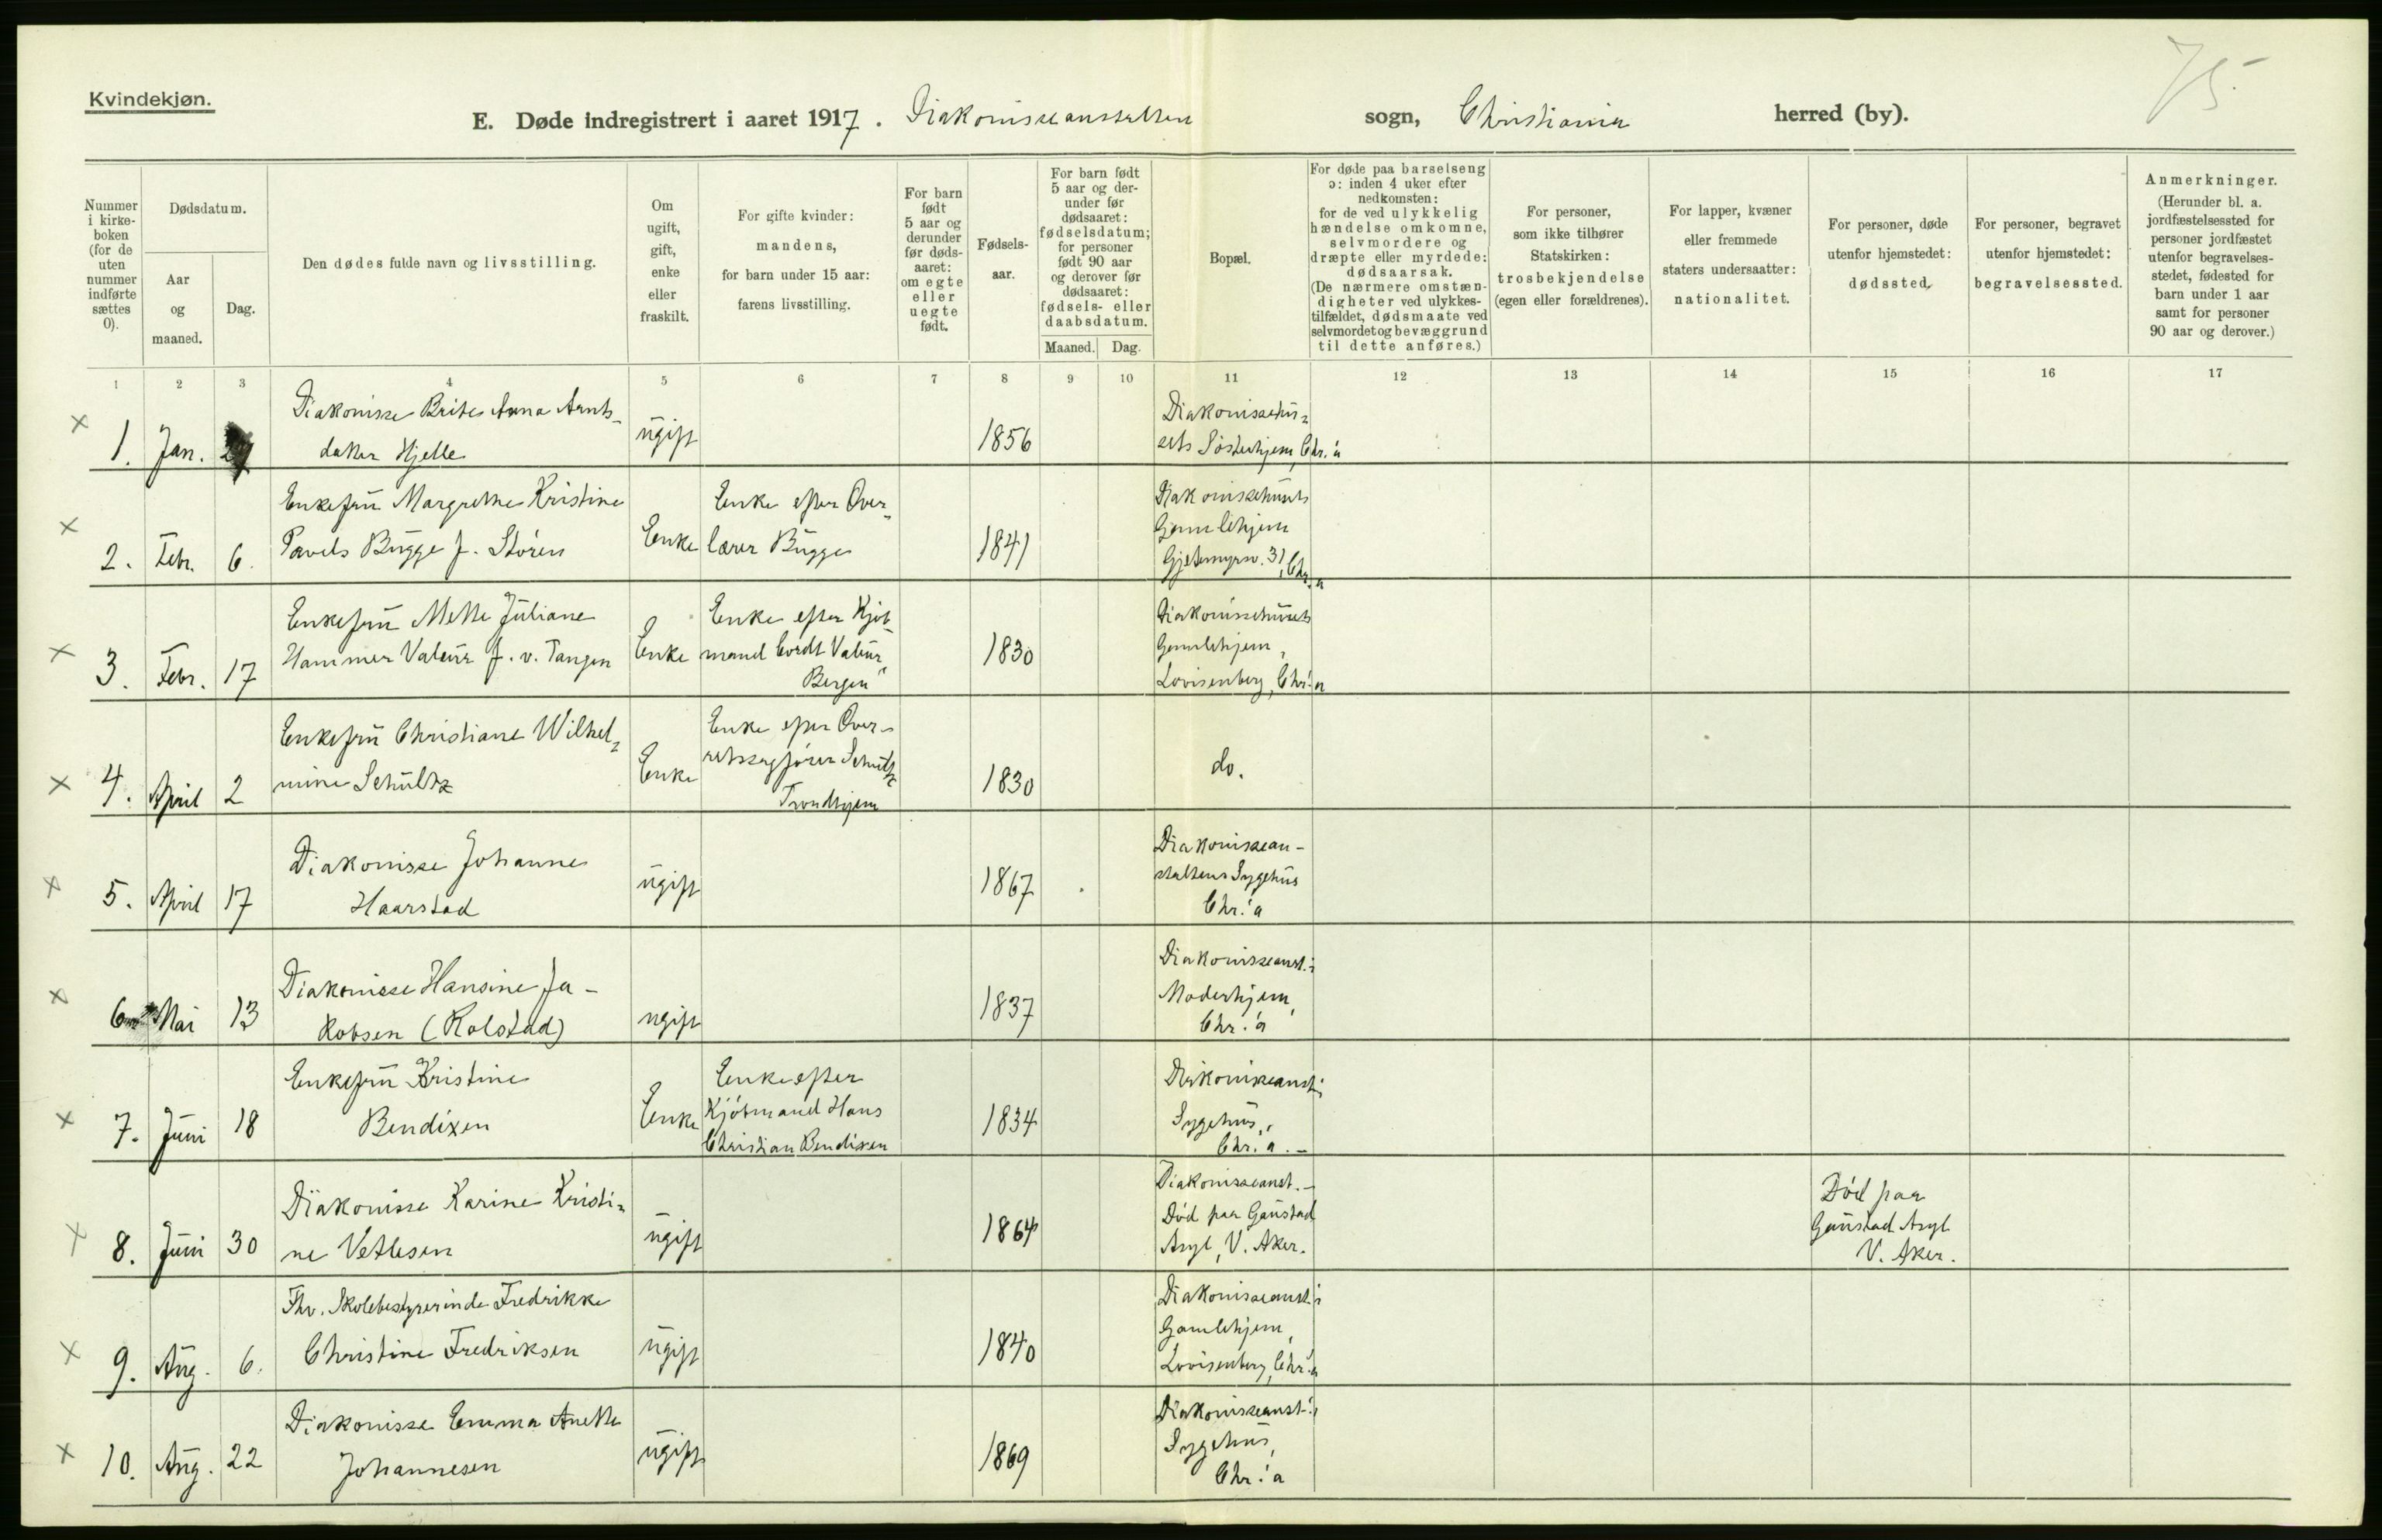 75.
Kvindekjøn.
E. Døde indregistrert i aaret 1917. Diakonisseanstalten sogn, Christiania herred (by).
Nummer
i kirke-
boken
(for de
uten
nummer
indførte
sættes
0).
Dødsdatum.
Aar
og
maaned.
Dag.
Den dødes fulde navn og livsstilling.
Om
ugift,
gift,
enke
eller
fraskilt.
For gifte kvinder:
mandens,
for barn under 15 aar:
farens livsstilling.
For barn
født
5 aar og
derunder
før døds-
aaret:
om egte
eller
uegte
født.
Fødsels-
aar.
For barn født
5 aar og der-
under før
dødsaaret:
fødselsdatum;
for personer
født 90 aar
og derover før
dødsaaret:
fødsels- eller
daabsdatum.
Maaned. Dag.
Bopæl.
For døde paa barselseng
ɔ: inden 4 uker efter
nedkomsten:
for de ved ulykkelig
hændelse omkomne,
selvmordere og
dræpte eller myrdede:
dødsaarsak.
(De nærmere omstæn-
digheter ved ulykkes-
tilfældet, dødsmaate ved
selvmordet og bevæggrund
til dette anføres.)
For personer,
som ikke tilhører
Statskirken:
trosbekjendelse
(egen eller forældrenes).
For lapper, kvæner
eller fremmede
staters undersaatter:
nationalitet.
For personer, døde
utenfor hjemstedet:
dødssted.
For personer, begravet
utenfor hjemstedet:
begravelsessted.
Anmerkninger.
(Herunder bl. a.
jordfæstelsessted for
personer jordfæstet
utenfor begravelses-
stedet, fødested for
barn under 1 aar
samt for personer
90 aar og derover.)
1 2 3 4 5 6 7 8 9 10 11 12 13 14 15 16 17
x 1. Jan.
Diakonisse Brite Anna Arnts-
datter Hjelle
ugift
1856
Diakonissehu-
sets Søsterhjem, Chr.a
x 2. Febr. 6.
Enkefru Margrethe Kristine
Pavels Bugge f. Støren
Enke
Enke efter Over-
lærer Bugge
1841
Diakonissehusets
Gamlehjem
Gjetemyrsv. 31, Chr.a
x 3. Febr. 17
Enkefru Mette Juliane
Hammer Valeur f. v. Tangen
Enke
Enke efter Kjøb-
mand Cordt Valeur,
Bergen
1830
Diakonissehusets
Gamlehjem,
Lovisenberg, Chr.a
x 4. April 2
Enkefru Christiane Wilhel-
mine Schultz
Enke
Enke efter Over-
retssagfører Schultz
Trondhjem
1830
do.
x 5. April 17
Diakonisse Johanne
Haarstad
ugift
1867
Diakonissean-
staltens Sygehus
Chr.a
x 6 Mai 13
Diakonisse Hansine Ja-
kobsen (Kolstad)
ugift
1837
Diakonisseanst.s
Moderhjem,
Chr.a
x 7. Juni 18
Enkefru Kristine
Bendixen
Enke
Enke efter
Kjøbmand Hans
Christian Bendixen
1834
Diakonisseanst.s
Sygehus,
Chr.a.-
x 8. Juni 30
Diakonisse Karine Kristi-
ne Vetlesen
ugift
1864
Diakonisseanst.-
Død paa Gaustad
Asyl, V. Aker.
Død paa
Gaustad Asyl
V. Aker.
x 9. Aug. 6.
Fhv. Skolebestyrerinde Fredrikke
Christine Fredriksen
ugift
1840
Diakonisseanst.s
Gamlehjem,
Lovisenberg, Chr.a
x 10. Aug. 22
Diakonisse Emma Anette
Johannesen
ugift
1869
Diakonisseanst.s
Sygehus,
Chr.a